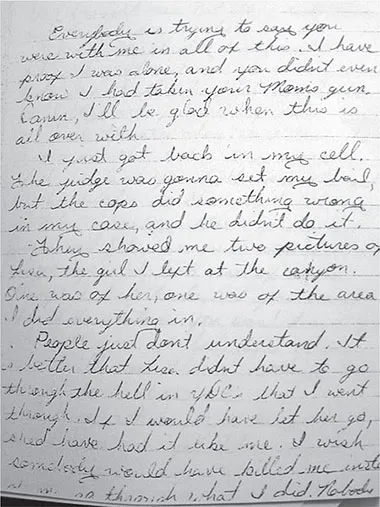 Everybody is trying to say you
were with me in all of this. I have
proof I was alone, and you didn't even
know I had taken your Moms gun.
Damn, I'll be glad when this is
all over with
I just got back in my cell.
The judge was gonna set my bail,
but the cops did something wrong
in my case, and he didn't do it.
They showed me two pictures of
Lisa, the girl I left at the canyon.
One was of her, one was of the area
I did everything in.
People just dont understand. It
better that Lisa didnt have to go
through the hell in YDCs that I went
through. If I would have let her go,
she'd have had it like me. I wish
somebody would have killed me
through what I did. Nobody